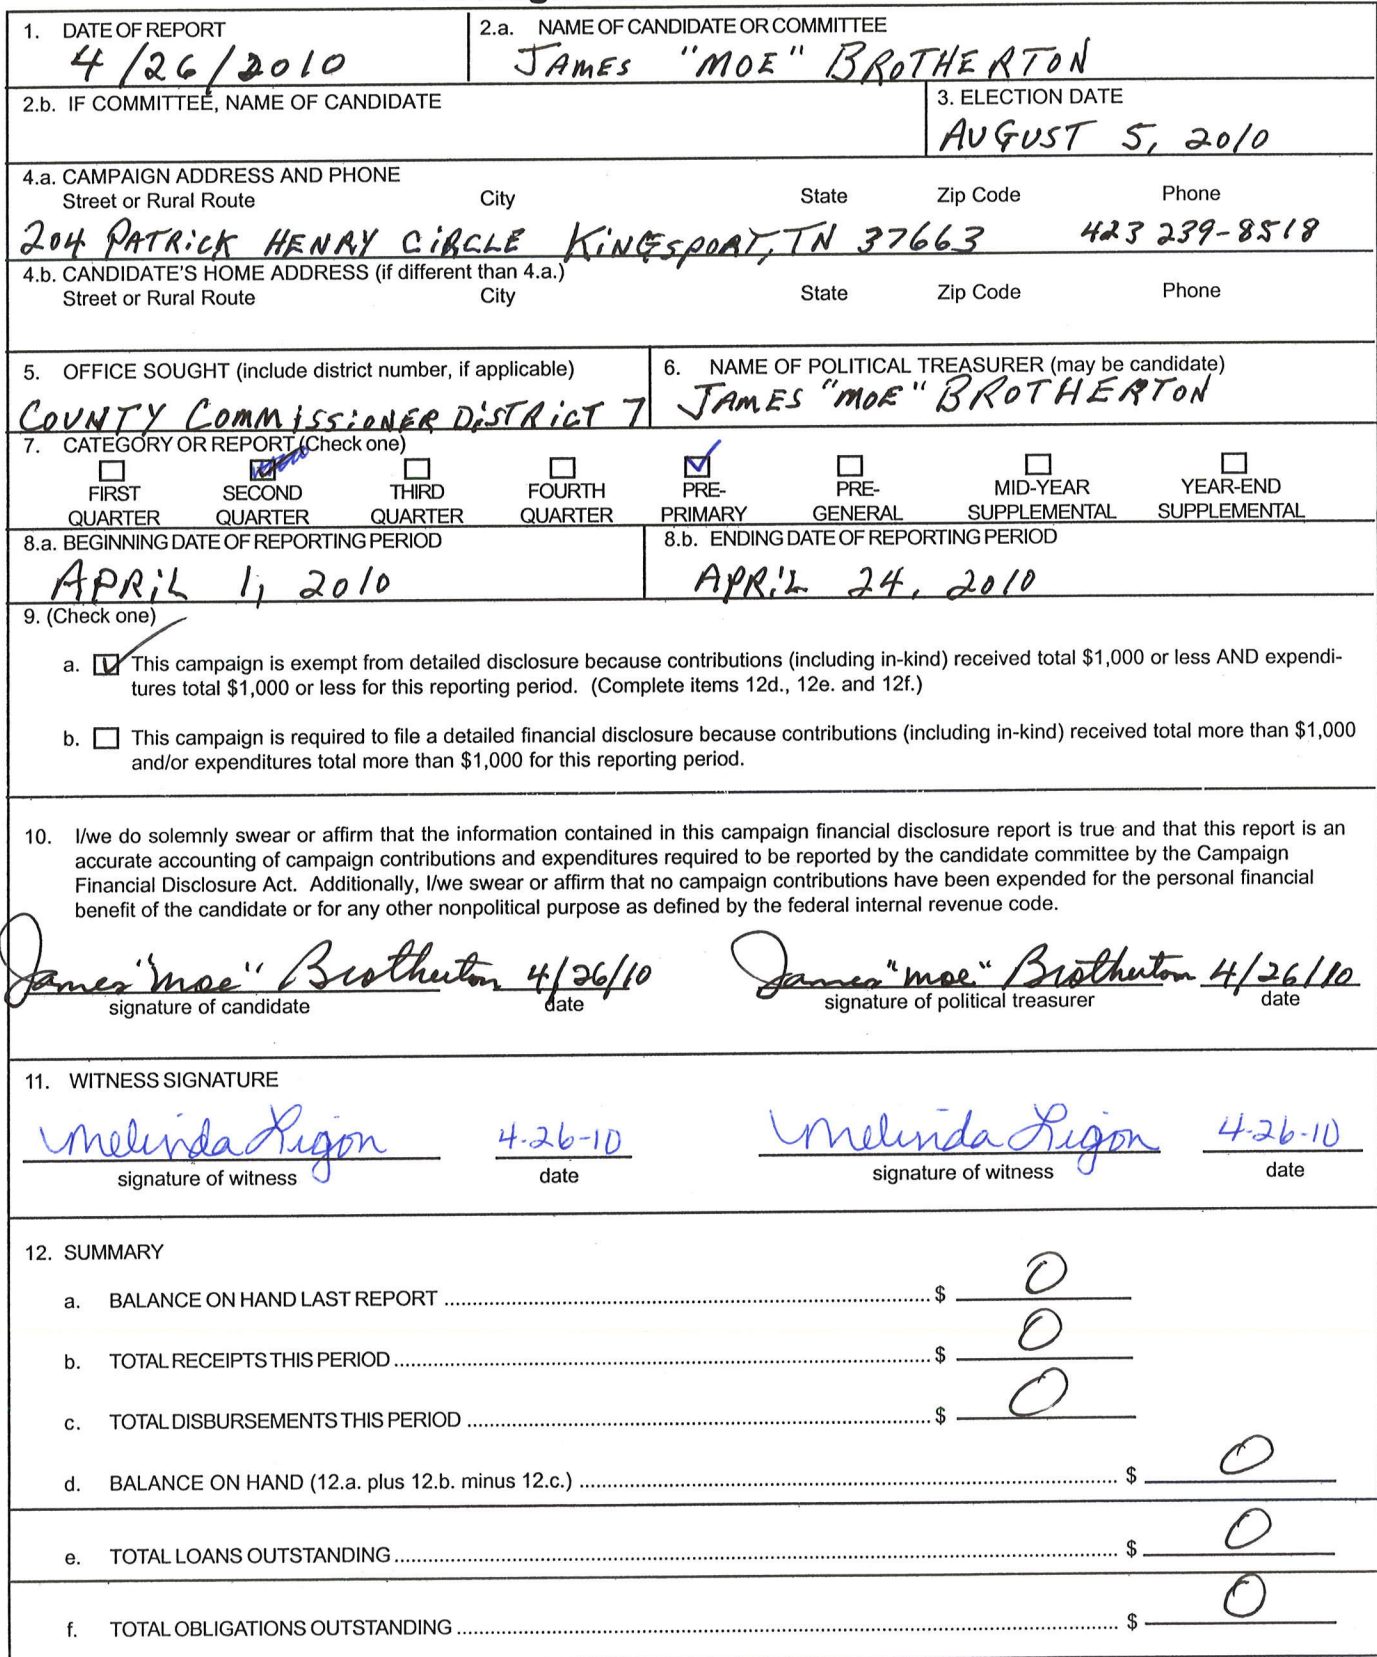 1. DATE OF REPORT
4/26/2010
2.a. NAME OF CANDIDATE OR COMMITTEE
JAMES "MOE" BROTHERTON
2.b. IF COMMITTEE, NAME OF CANDIDATE
3. ELECTION DATE
AUGUST 5, 2010
4.a. CAMPAIGN ADDRESS AND PHONE
Street or Rural Route City State Zip Code Phone
204 PATRICK HENRY CIRCLE KINGSPORT, TN 37663 423 239-8518
4.b. CANDIDATE'S HOME ADDRESS (if different than 4.a.)
Street or Rural Route City State Zip Code Phone
5. OFFICE SOUGHT (include district number, if applicable)
COUNTY COMMISSIONER DISTRICT 7
6. NAME OF POLITICAL TREASURER (may be candidate)
JAMES "MOE" BROTHERTON
7. CATEGORY OR REPORT (Check one)
FIRST QUARTER
SECOND QUARTER
THIRD QUARTER
FOURTH QUARTER
PRE-PRIMARY
PRE-GENERAL
MID-YEAR SUPPLEMENTAL
YEAR-END SUPPLEMENTAL
8.a. BEGINNING DATE OF REPORTING PERIOD
APRIL 1, 2010
8.b. ENDING DATE OF REPORTING PERIOD
APRIL 24, 2010
9. (Check one)
a. This campaign is exempt from detailed disclosure because contributions (including in-kind) received total $1,000 or less AND expendi-
tures total $1,000 or less for this reporting period. (Complete items 12d., 12e. and 12f.)
b. This campaign is required to file a detailed financial disclosure because contributions (including in-kind) received total more than $1,000
and/or expenditures total more than $1,000 for this reporting period.
10. I/we do solemnly swear or affirm that the information contained in this campaign financial disclosure report is true and that this report is an
accurate accounting of campaign contributions and expenditures required to be reported by the candidate committee by the Campaign
Financial Disclosure Act. Additionally, I/we swear or affirm that no campaign contributions have been expended for the personal financial
benefit of the candidate or for any other nonpolitical purpose as defined by the federal internal revenue code.
James "Moe" Brotherton 4/26/10 James "Moe" Brotherton 4/26/10
signature of candidate date signature of political treasurer date
11. WITNESS SIGNATURE
Melinda Ligon 4-26-10 Melinda Ligon 4-26-10
signature of witness date signature of witness date
12. SUMMARY
a. BALANCE ON HAND LAST REPORT $ 0
b. TOTAL RECEIPTS THIS PERIOD $ 0
c. TOTAL DISBURSEMENTS THIS PERIOD $ 0
d. BALANCE ON HAND (12.a. plus 12.b. minus 12.c.) $ 0
e. TOTAL LOANS OUTSTANDING $ 0
f. TOTAL OBLIGATIONS OUTSTANDING $ 0